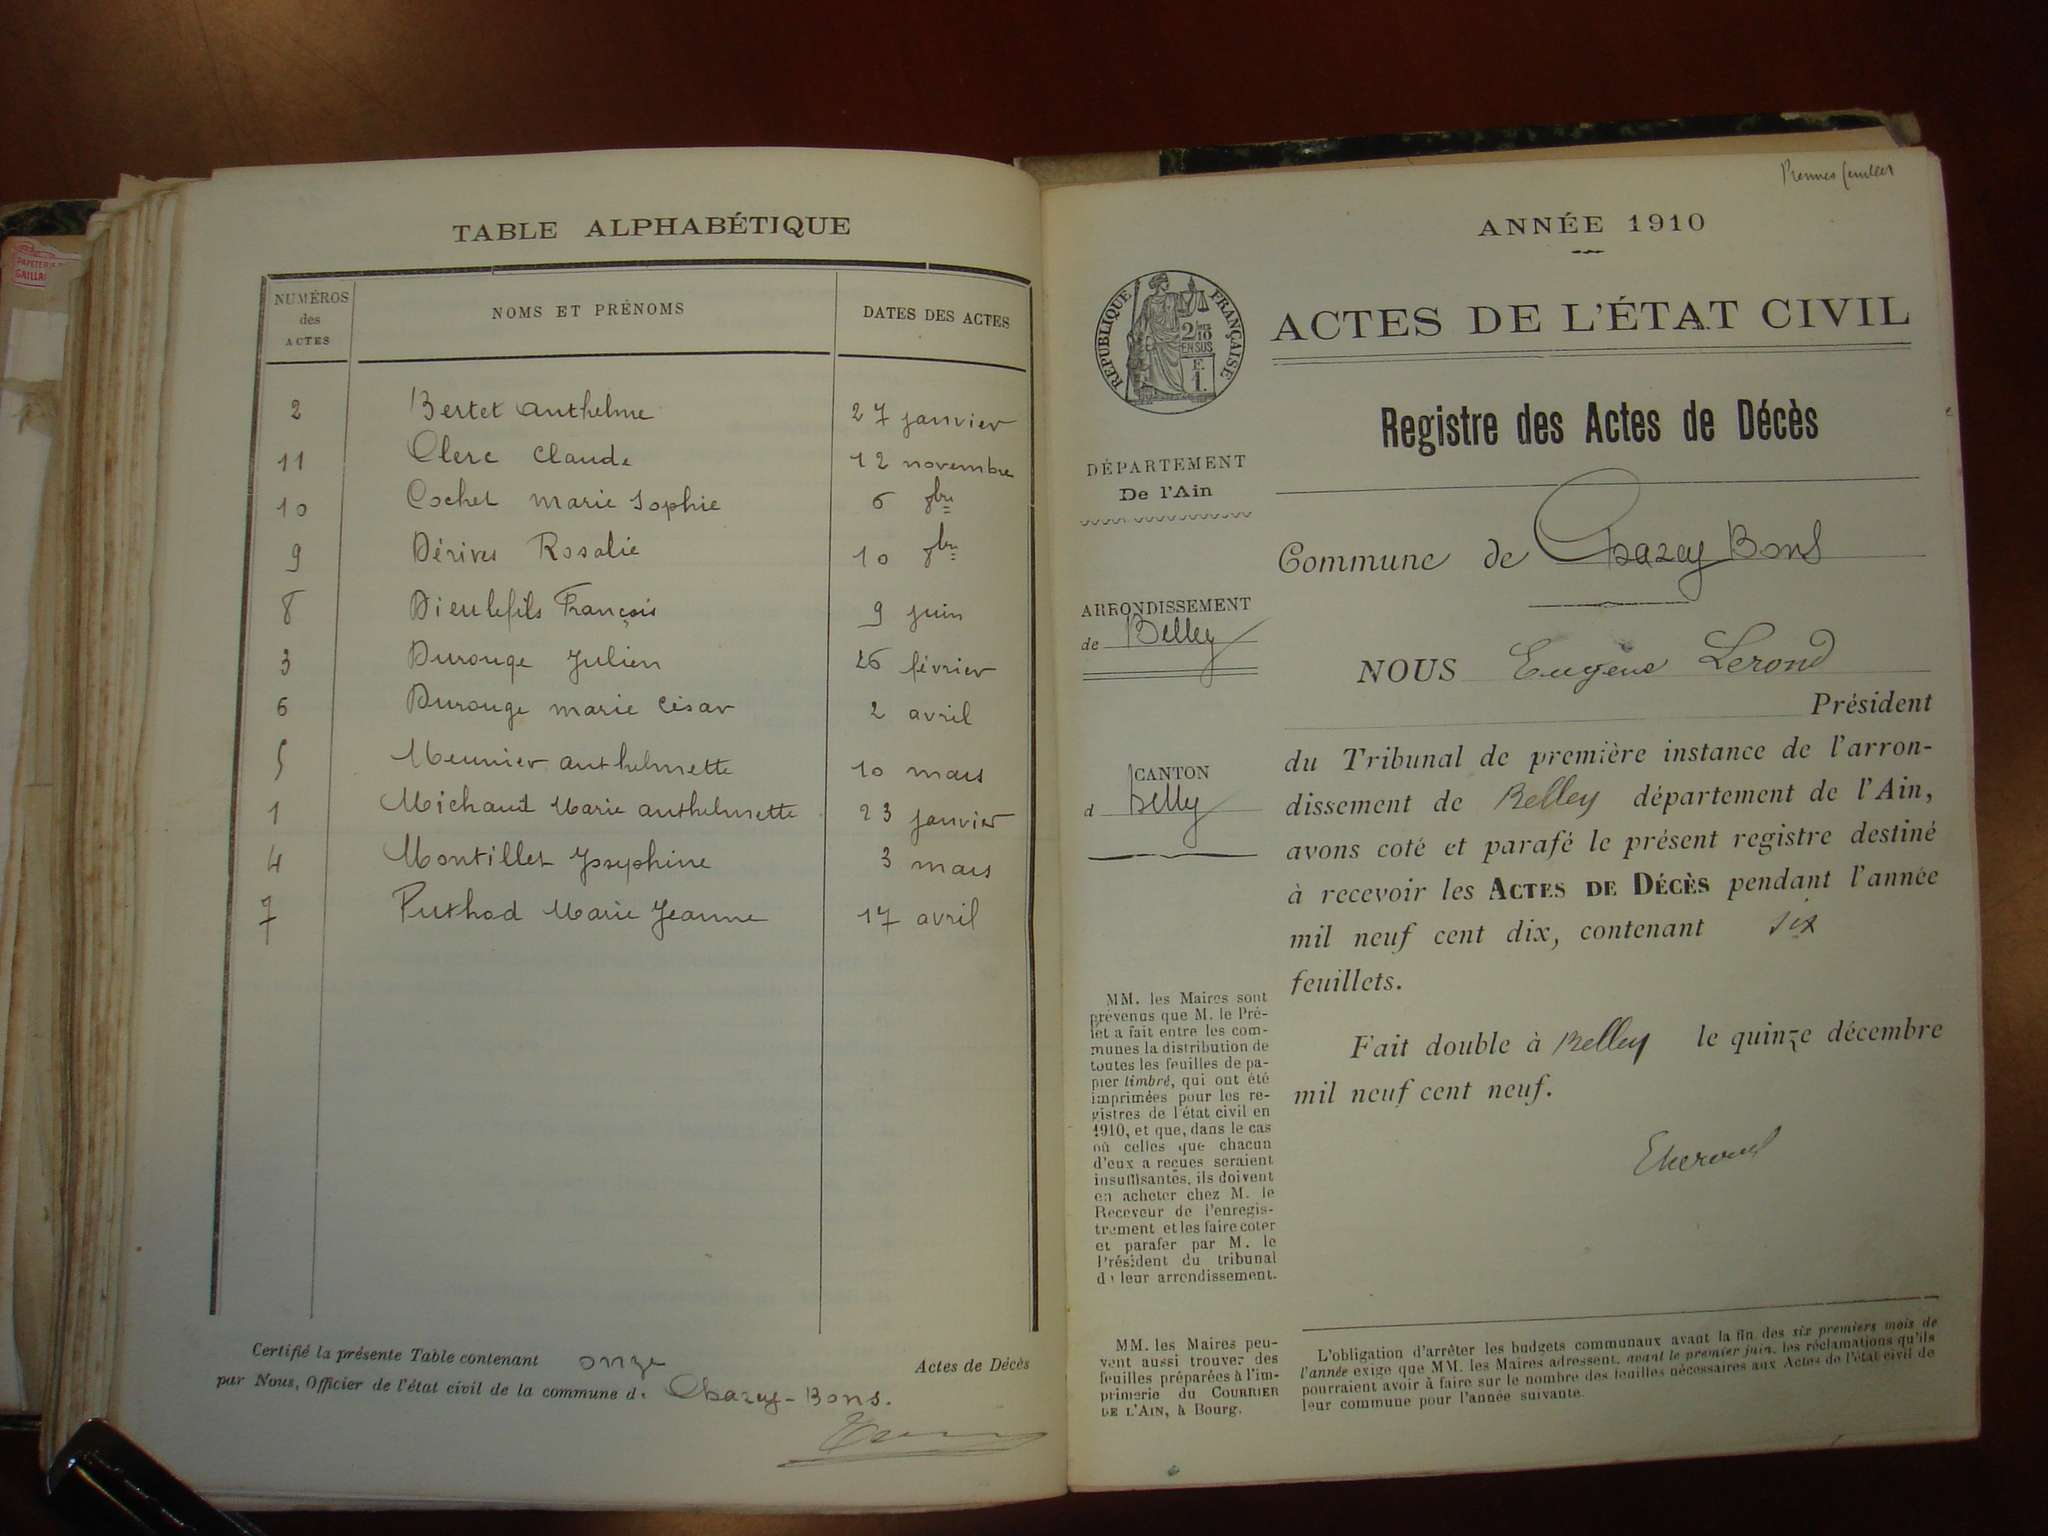 PAPETERIE
GAILLA
TABLE ALPHABÉTIQUE
NUMÉROS des ACTES NOMS ET PRÉNOMS DATES DES ACTES
2 Bertet anthelme 27 janvier
11 Clerc Claude 12 novembre
10 Cochet marie Sophie 6 8bre
9 Dérives Rosalie 10 7bre
8 Dieulefils François 9 juin
3 Durouge Julien 26 février
6 Durouge marie César 2 avril
5 Meunier anthelmette 10 mars
1 Michaud Marie anthelmette 23 janvier
4 Montillet Joséphine 3 mars
7 Puthod Marie Jeanne 17 avril
Certifié la présente Table contenant onze Actes de Décès
par Nous, Officier de l'état civil de la commune d Chazey-Bons.
Premier feuillet
ANNÉE 1910
RÉPUBLIQUE FRANÇAISE
2/10
EN SUS
F.
1.
ACTES DE L'ÉTAT CIVIL
Registre des Actes de Décès
DÉPARTEMENT
De l'Ain
Commune de Chazey Bons
ARRONDISSEMENT
de Belley
NOUS Eugène Lerond
Président
CANTON
d Belley
du Tribunal de première instance de l'arron-
dissement de Belley département de l'Ain,
avons coté et parafé le présent registre destiné
à recevoir les ACTES DE DÉCÈS pendant l'année
mil neuf cent dix, contenant six
feuillets.
Fait double à Belley le quinze décembre
mil neuf cent neuf.
ELerond
MM. les Maires sont
prévenus que M. le Pré-
fet a fait entre les com-
munes la distribution de
toutes les feuilles de pa-
pier timbré, qui ont été
imprimées pour les re-
gistres de l'état civil en
1910, et que, dans le cas
où celles que chacun
d'eux a reçues seraient
insuffisantes, ils doivent
en acheter chez M. le
Receveur de l'enregis-
trement et les faire coter
et parafer par M. le
Président du tribunal
de leur arrondissement.
MM. les Maires peu-
vent aussi trouver des
feuilles préparées à l'im-
primerie du COURRIER
DE L'AIN, à Bourg.
L'obligation d'arrêter les budgets communaux avant la fin des six premiers mois de
l'année exige que MM. les Maires adressent, avant le premier juin, les réclamations qu'ils
pourraient avoir à faire sur le nombre des feuilles nécessaires aux Actes de l'état civil de
leur commune pour l'année suivante.